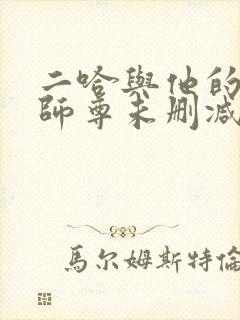 二哈與他的
師尊未刪減
馬尔姆斯特倫